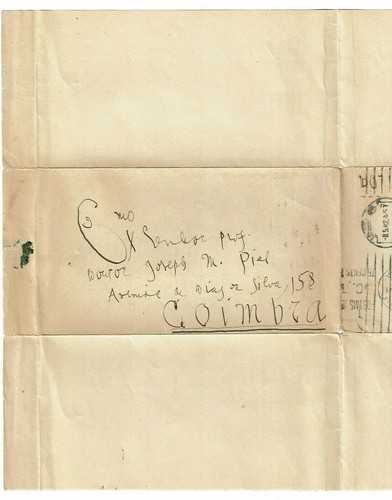 Exmo
Senhor Prof.
Doutor Joseph M. Piel
Avenida Dias da Silva, 158
Coimbra